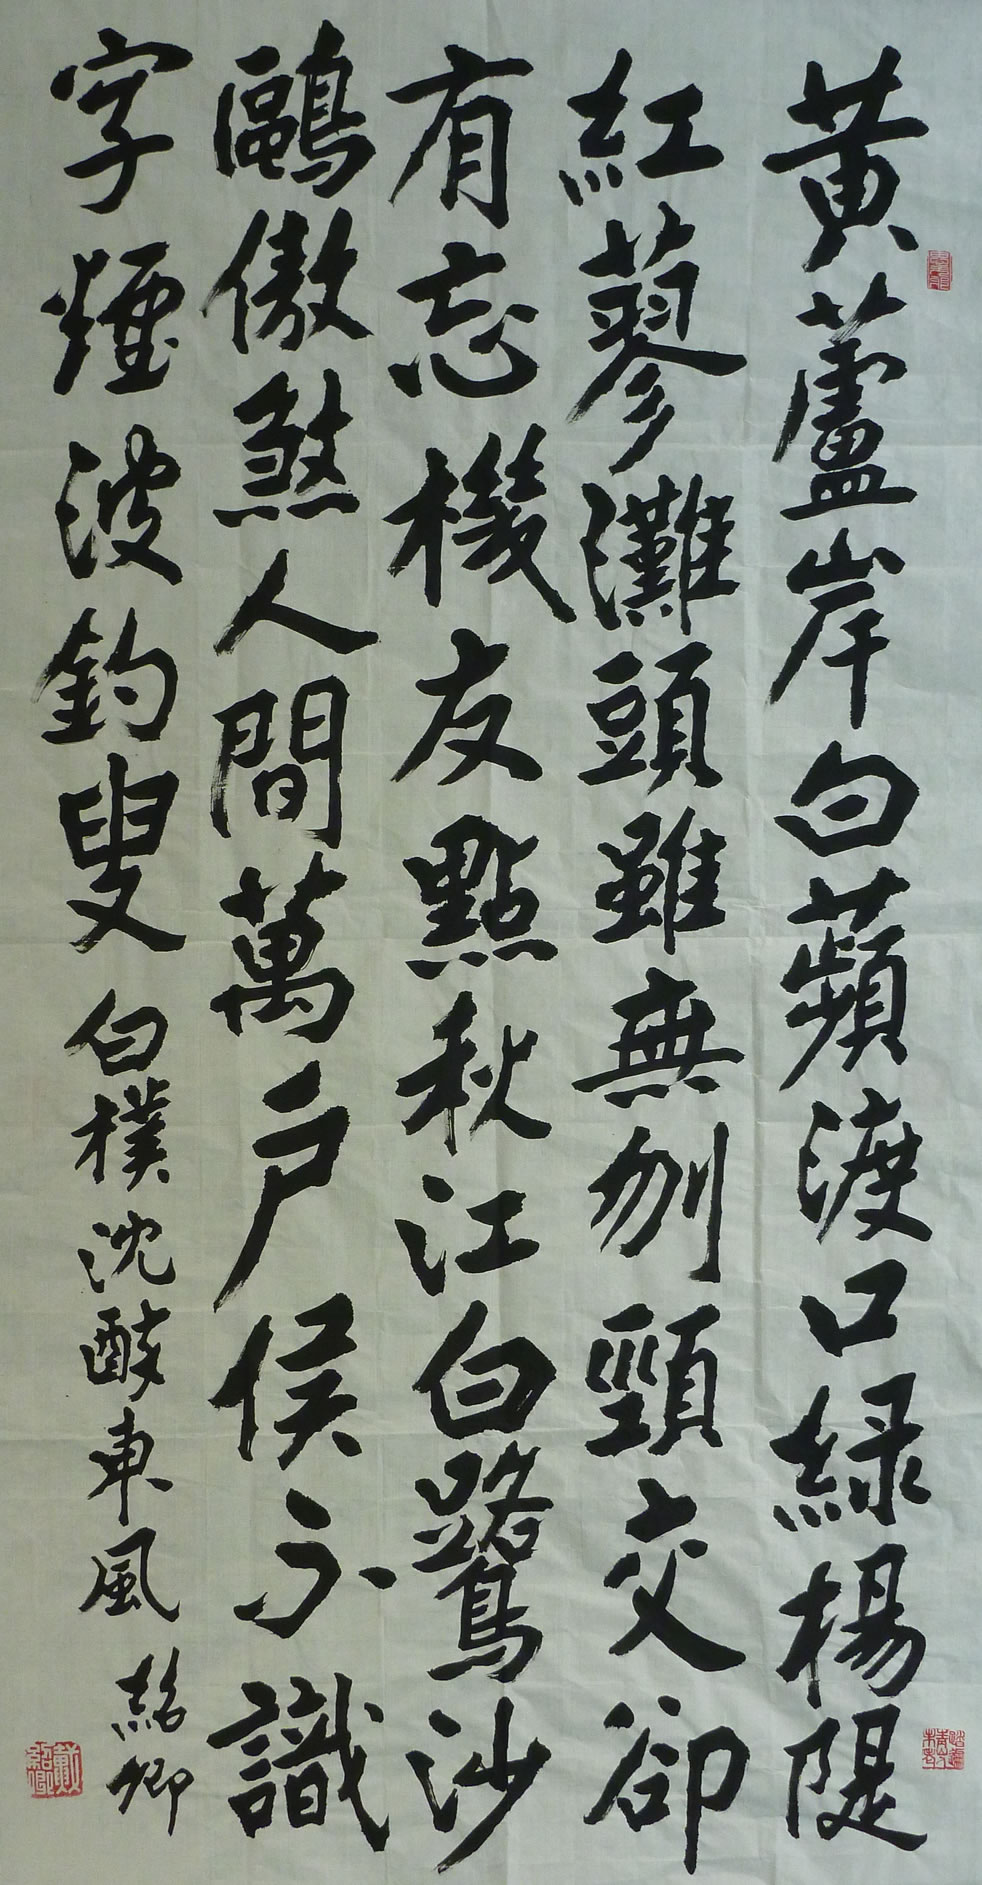 黄蘆岸白蘋渡口綠楊隄
紅蓼灘頭雖無刎頸交卻
有忘機友點秋江白鷺沙
鷗傲煞人間萬户侯不識
字煙波釣叟 白樸沈醉東風 紹卿